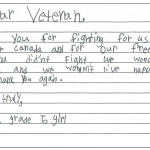 ar Veteran,
you for fighting for us
r canada and for our free
u didn't fight we woud
and we woudn't live happ
hank you again.
truly,
a grade 5 girl